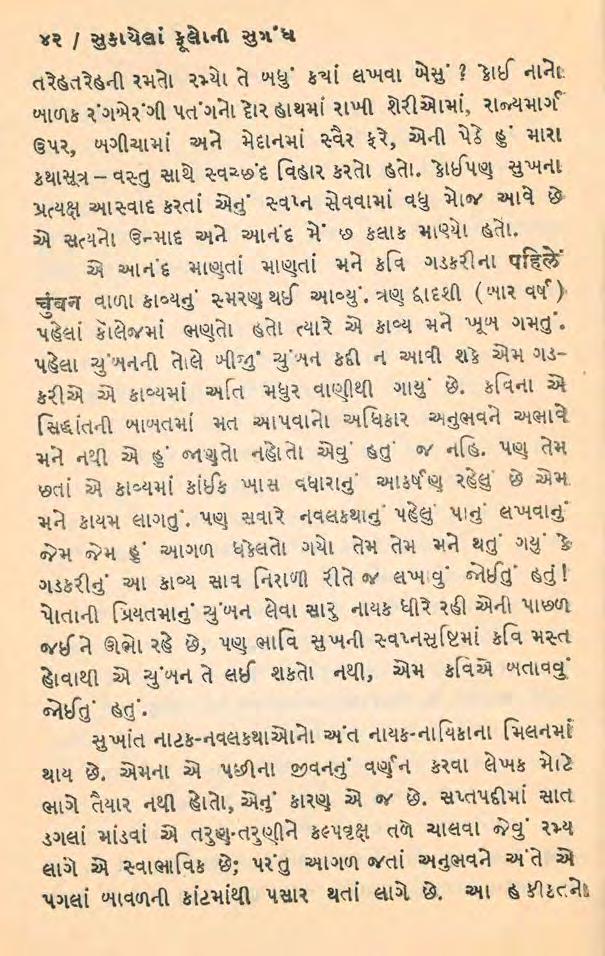 ૪૨ / સુકાયેલાં ફૂલોની સુગંધ
તરેહતરેહની રમતો રમ્યો તે બધું કયાં લખવા બેસું ? કોઈ નાનો
બાળક રંગબેરંગી પતંગનો દોર હાથમાં રાખી શેરીઓમાં, રાજ્યમાર્ગ
ઉપર, બગીચામાં અને મેદાનમાં સ્વૈર ફરે, એની પેઠે હું મારા
કથાસૂત્ર – વસ્તુ સાથે સ્વચ્છંદ વિહાર કરતો હતો. કોઈપણ સુખના
પ્રત્યક્ષ આસ્વાદ કરતાં એનું સ્વપ્ન સેવવામાં વધુ મોજ આવે છે
એ સત્યનો ઉન્માદ અને આનંદ મેં છ કલાક માણ્યો હતો.
એ આનંદ માણતાં માણતાં મને કવિ ગડકરીના पहिलें
चुंबन વાળા કાવ્યનું સ્મરણ થઈ આવ્યું. ત્રણ દ્વાદશી (બાર વર્ષ)
પહેલાં કૉલેજમાં ભણતો હતો ત્યારે એ કાવ્ય મને ખૂબ ગમતું.
પહેલા ચુંબનની તોલે બીજું ચુંબન કદી ન આવી શકે એમ ગડ-
કરીએ એ કાવ્યમાં અતિ મધુર વાણીથી ગાયું છે. કવિના એ
સિદ્ધાંતની બાબતમાં મત આપવાનો અધિકાર અનુભવને અભાવે
મને નથી એ હું જાણતો નહોતો એવું હતું જ નહિ. પણ તેમ
છતાં એ કાવ્યમાં કાંઈક ખાસ વધારાનું આકર્ષણ રહેલું છે એમ
મને કાયમ લાગતું. પણ સવારે નવલકથાનું પહેલું પાનું લખવાનું
જેમ જેમ હું આગળ ધકેલતો ગયો તેમ તેમ મને થતું ગયું કે
ગડકરીનું આ કાવ્ય સાવ નિરાળી રીતે જ લખાવું જોઈતું હતું!
પોતાની પ્રિયતમાનું ચુંબન લેવા સારુ નાયક ધીરે રહી એની પાછળ
જઈ ને ઊભો રહે છે, પણ ભાવિ સુખની સ્વપ્નસૃષ્ટિમાં કવિ મસ્ત
હોવાથી એ ચુંબન તે લઈ શકતો નથી, એમ કવિએ બતાવવું
જોઈતું હતું.
સુખાંત નાટક-નવલકથાઓનો અંત નાયક-નાયિકાના મિલનમાં
થાય છે. એમના એ પછીના જીવનનું વર્ણન કરવા લેખક મોટે
ભાગે તૈયાર નથી હોતો, એનું કારણ એ જ છે. સપ્તપદીમાં સાત
ડગલાં માંડવાં એ તરુણ-તરુણીને કલ્પવૃક્ષ તળે ચાલવા જેવું રમ્ય
લાગે એ સ્વાભાવિક છે; પરંતુ આગળ જતાં અનુભવને અંતે એ
પગલાં બાવળની કાંટમાંથી પસાર થતાં લાગે છે. આ હકીકતનો